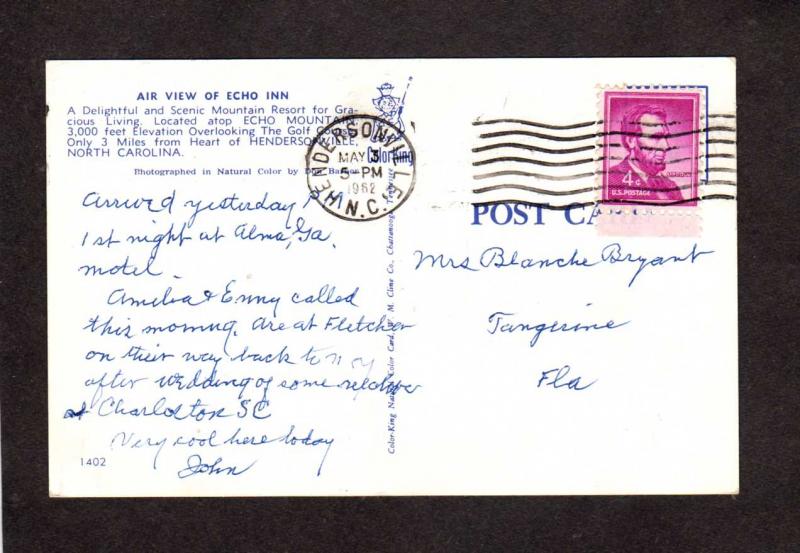 AIR VIEW OF ECHO INN
A Delightful and Scenic Mountain Resort for Gra-
cious Living. Located atop ECHO MOUNTAIN
3,000 feet Elevation Overlooking The Golf Course
Only 3 Miles from Heart of HENDERSONVILLE,
NORTH CAROLINA.
Photographed in Natural Color by Don
Arrived yesterday P M
1st night at Alma, Ga.
motel.
Amelia & Enny called
this morning. are at Fletcher
on their way back to NY
after wedding of some relative
at Charleston SC
Very cool here today
John
1402
Color-King Natural Color Card, W. M. Cline Co., Chattanooga, Tennessee
Colorking
HENDERSONVILLE
MAY 3
5-PM
1962
N.C.
4¢
U.S. POSTAGE
POST CA
Mrs Blanche Bryant
Tangerine
Fla